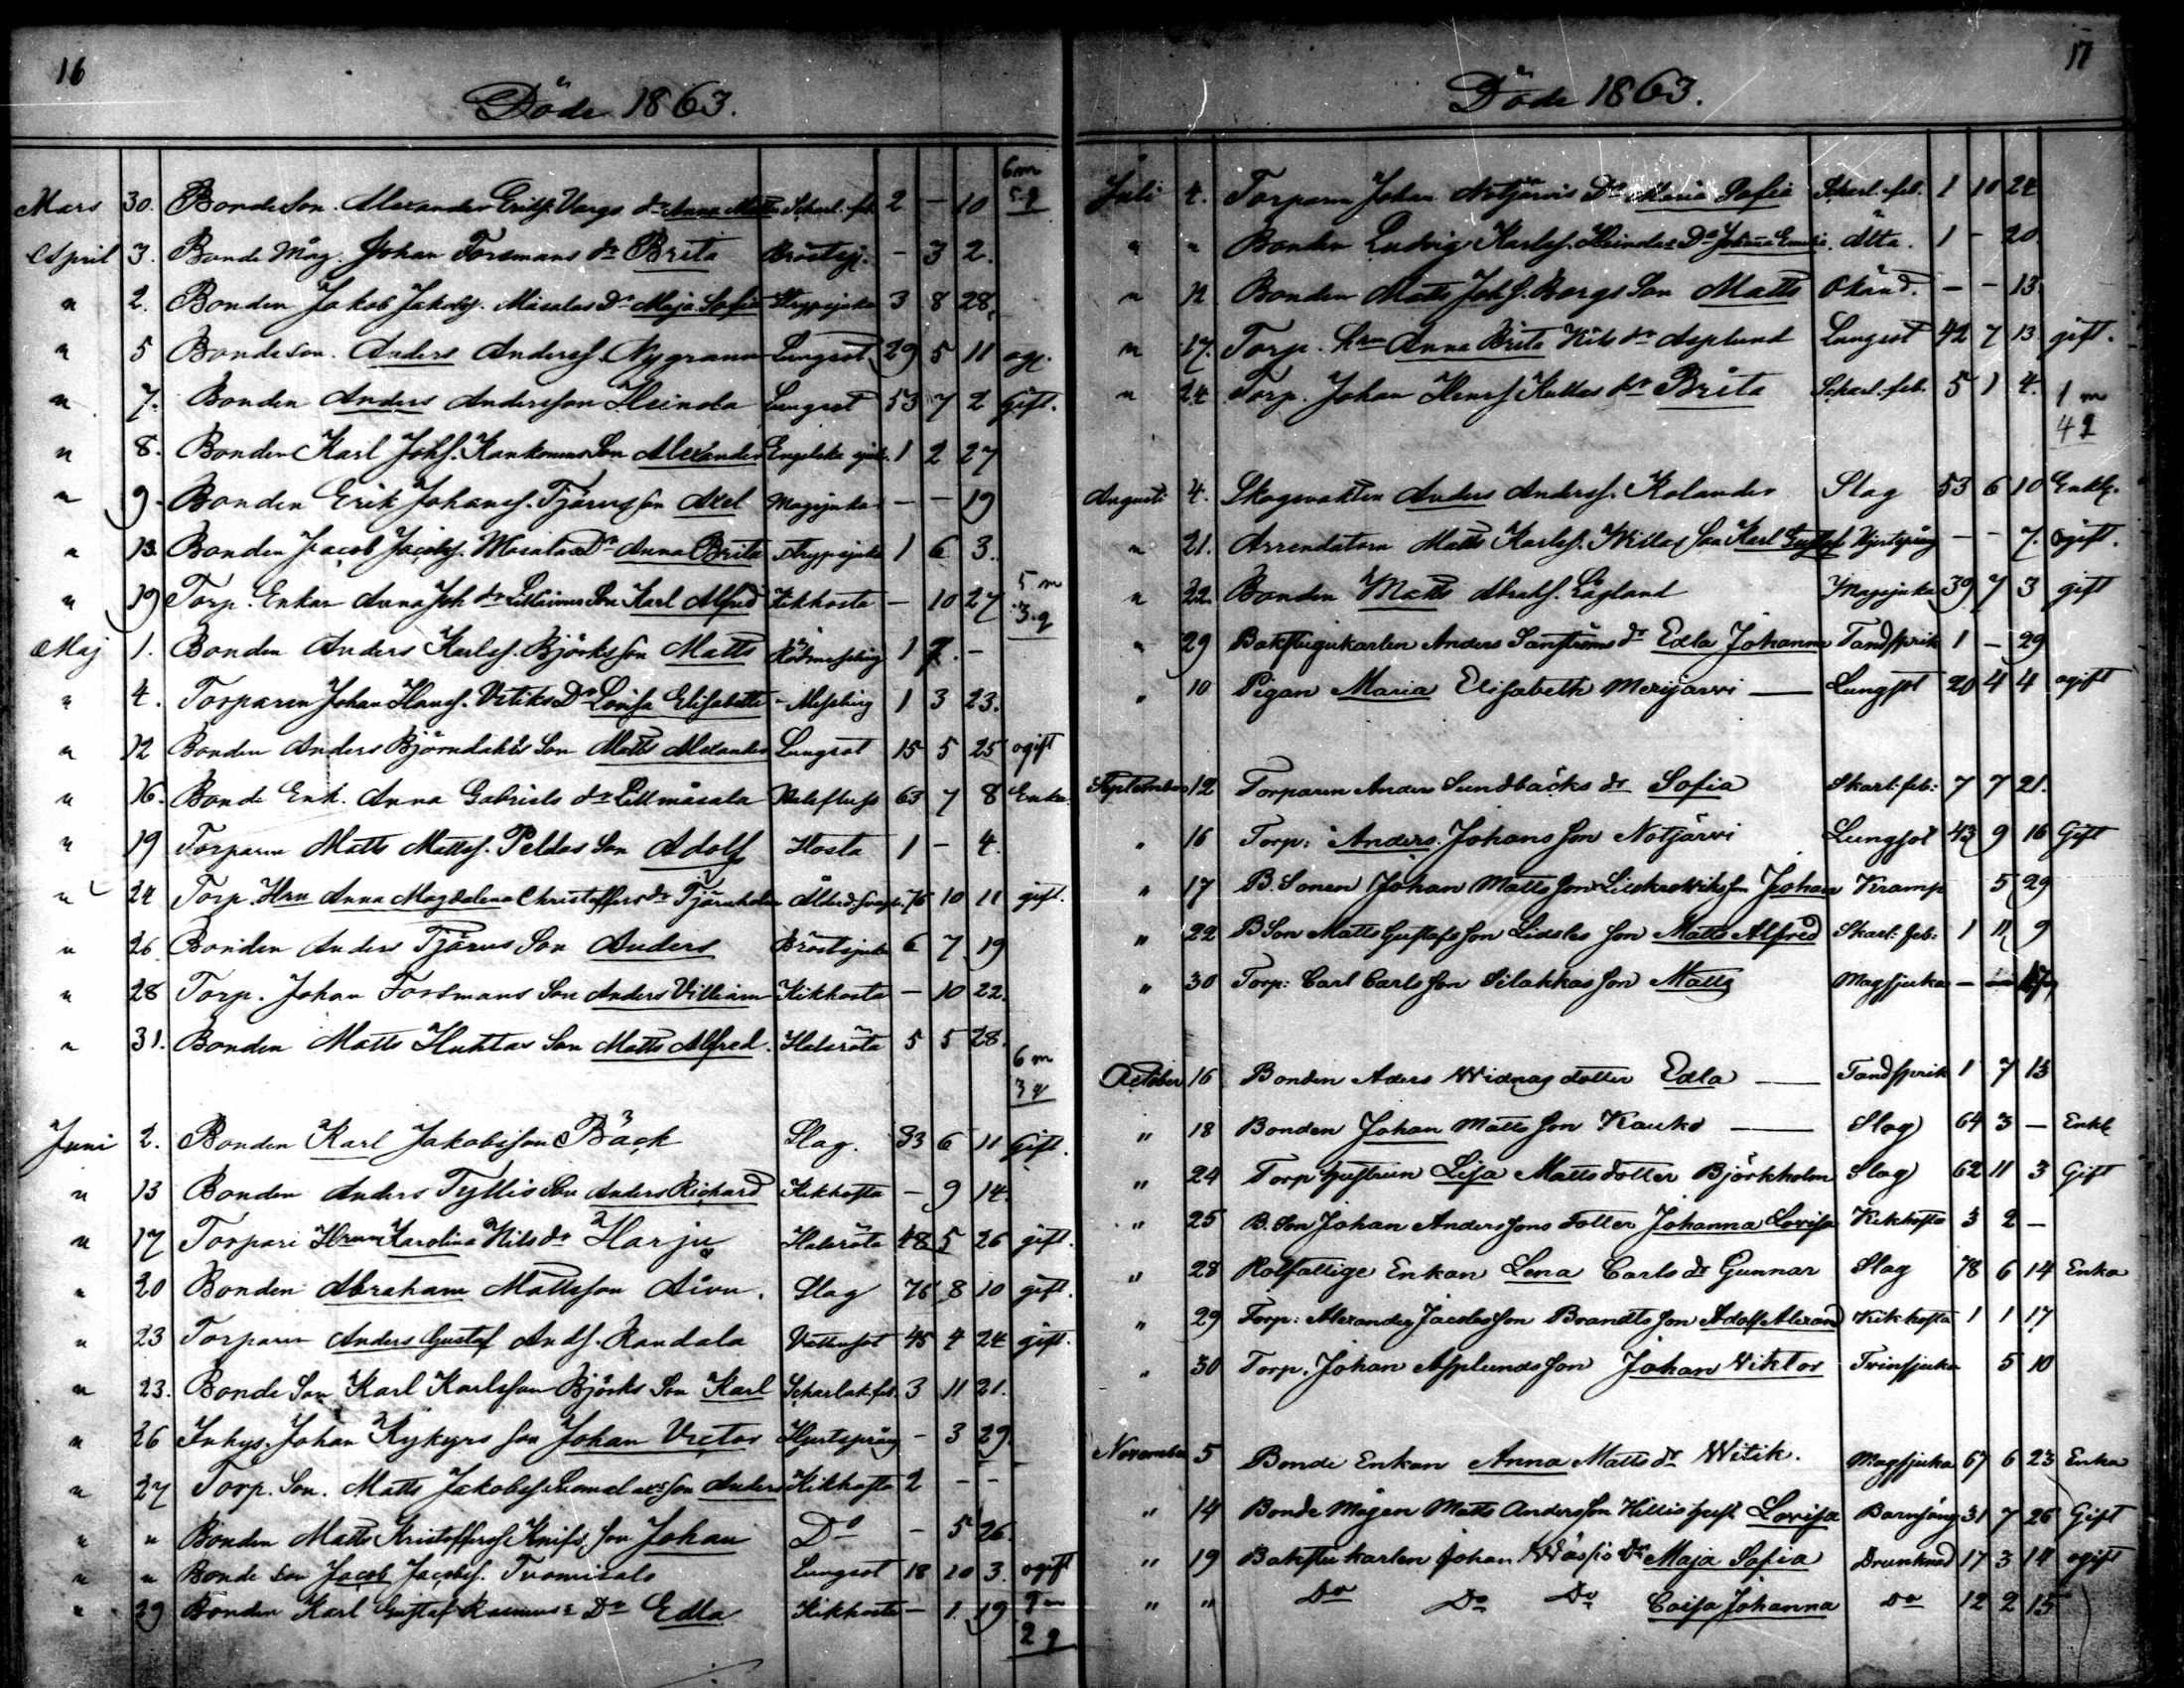 16
Döde 1863.
6 m
5 q
Mars 30. Bondeson Alexander Vargs dr Anna Scharl. feb. 2 – 10
April 3. Bonde Måg. Johan Forsmans dr Brita Bröstsj. – 3 2.
" 2. Bonden Jakob Jakobs. Masalas Dr Maja Sofia Strypsjuka 3 8 28.
" 5 Bondeson. Anders Anderss. Nygrann Lungsot 29 5 11 og.
" 7. Bonden Anders Andersson Heinola Lungsot 53 7 2 Gift.
" 8. Bonden Karl Johs. Kankonens Son Alexander Engelska sjuk. 1 2 27
" 9. Bonden Erik Johanss. Tjärus son Axel Magsjuka – – 19
" 13. Bonden Jacob Jacobs. Masalas Dr Anna Brita Strypsjuka 1 6 3.
" 19 Torp. Enkan Anna Joh dr Son Karl Alfred Kikhosta – 10 27
5 m
3. q
Maj 1. Bonden Anders Karlss. Björks son Matts 1 7. –
" 4. Torparen Johan Hanss. Vitiks Dr Lovisa Elisabeth – Messling 1 3 23.
" 12 Bonden Anders Björndahls Son Matts Alexander Lungsot 15 5 25 ogift
" 16. Bonde Enk. Anna Gabriels dr Lillmåsala 63 7 8 Enka.
" 19 Torparen Matts Mattss. Peldas Son Adolf Hosta 1 – 4.
" 24 Torp. Hru Anna Magdalena Christoffers dr Tjäruholm 76 10 11 gift.
" 26 Bonden Anders Tjärus Son Anders Bröstsjuka 6 7 19
" 28 Torp. Johan Forsmans Son Anders Villiam Kikhosta – 10 22.
" 31. Bonden Matts Huhtas Son Matts Alfred. Halsröta 5 5 28.
6 m
3 q
Juni 2. Bonden Karl Jakobsson Bäck Slag. 33 6 11 Gift.
" 13 Bonden Anders Tyllis Son Anders Richard Kikhosta – 9 14.
" 17 Torpari Hrun Karolina Nils dr Harju Halsröta 48 5 26 gift.
" 20 Bonden Abraham Mattsson Aivu. Slag 76 8 10 gift.
" 23 Torparen Anders Gustaf Ands. Randala Vattusot 45 4 24 gift.
" 23. Bonde Son Karl Karlsson Björks Son Karl Scharlak. feb. 3 11 21.
" 26 Inhys. Johan Kykyrs son Johan Victor Hjertspräng – 3 29.
" 27 Torp. Son. Matts Jakobss. son Anders Kikhosta 2 – –
" " Bonden Matts Kristofferss. Knifs son Johan Do – 5 26.
" " Bonde Son Jacob Jacobs. Tuomisalo Lungsot 18 10 3. ogift
" 29 Bonden Karl Gustaf Rasmus: Dr Edla Kikhosta – 1. 19
2 q
17
Döde 1863.
Juli 4. Torparen Johan Notjärvis Dr Maria Sofia Skarl. feb. 1 10 24
" " Bonden Ludvig Karlss. Heinolas Dr Johanna Älta. 1 – 20
" 12 Bonden Matts Johs. Bergs Son Matts Okänd. – – 13.
" 17. Torp. hrn Anna Brita Nils dr Asplund Lungsot 42 7 13 gift.
" 24 Torp. Johan Kultas dr Brita Scharl. feb. 5 1 4.
1 m
4 q
Augusti 4. Skogsvakten Anders Anderss. Kolander Slag 53 6 10 Enkl.
" 21. Arrendatorn Matts Karlss. Son Karl Gustaf Hjertspräng – – 7. ogift.
" 22. Bonden Matts Abrahs. Lågland Magsjuka 39 7 3 gift
" 29 Backstugukarlen Anders Sanströms dr Edla Johanna Tandsprik 1 – 29
" 10 Pigan Maria Elisabeth Merijarvi — Lungsot 20 4 4 ogift
September 12 Torparen Anders Sundbäcks dr Sofia Skarl: feb: 7 7 21.
" 16 Torp: Anders Johansson Notjärvi Lungsot 43 9 16 Gift
" 17 B. Sonen Johan Mattsson son Johan Kramp 5 29
" 22 B Son Matts Gustafsson Lidsles son Matts Alfred Skarl: feb: 1 11 9
" 30 Torp: Carl Carlsson Silakkas son Matts Magsjuka – –
October 16 Bonden Aders Widnas dotter Edla — Tandsprik 1 7 13
" 18 Bonden Johan Mattsson Kauko — Slag 64 3 – Enkl
" 24 Torp hustrun Lisa Mattsdotter Björkholm Slag 62 11 3 Gift
" 25 B. Son Johan Anderssons Dotter Johanna Lovisa Kikhosta 3 2 –
" 28 Rotfattige Enkan Lena Carls dr Gunnar Slag 78 6 14 Enka
" 29 Torp: Alexander Jacobsson Brandts son Adolf Alexand Kikhosta 1 1 17
" 30 Torp. Johan Asplunds son Johan Wiktor Tvinsjuka 5 10
November 5 Bonde Enkan Anna Matts dr Witik. Magsjuka 67 6 23 Enka
" 14 Bonde Mågen Matts Andersson Hillis hust. Lovisa Barnsäng 31 7 26 Gift
" 19 Bakstukarlen Johan dr Maja Sofia Drunknad 17 3 14 ogift
" " Do Do Do Caisa Johanna Do 12 2 15